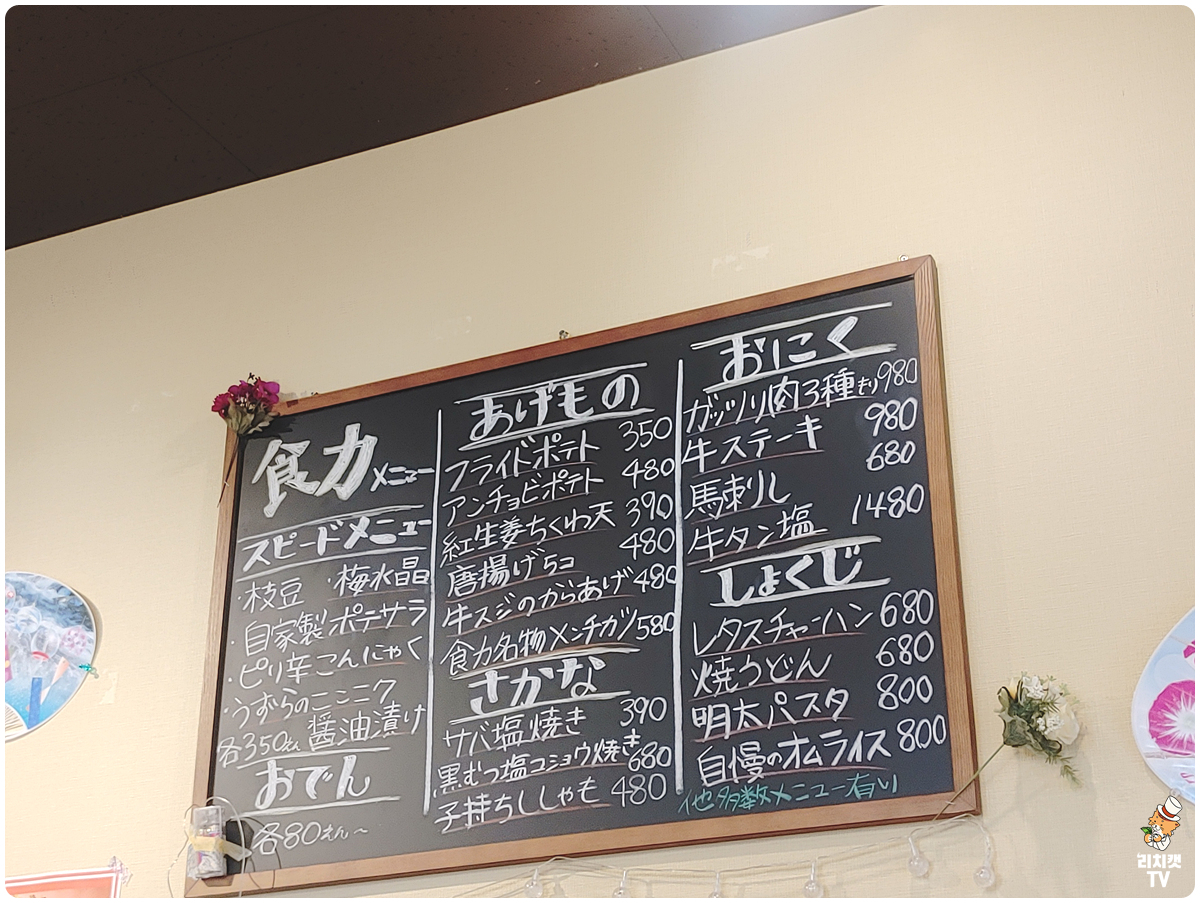 食力メニュー
スピードメニュー
・枝豆 ・梅水晶
・自家製ポテサラ
・ピリ辛こんにゃく
・うずらのニンニク
醤油漬け
各350えん
おでん
各80えん〜
あげもの
フライドポテト 350
アンチョビポテト 480
紅生姜ちくわ天 390
唐揚げ5コ 480
牛スジのからあげ 480
食力名物メンチカツ 580
さかな
サバ塩焼き 390
黒むつ塩コショウ焼き 680
子持ちししゃも 480
おにく
ガッツリ肉3種もり 980
牛ステーキ 980
馬刺し 680
牛タン塩 1480
しょくじ
レタスチャーハン 680
焼うどん 680
明太パスタ 800
自慢のオムライス 800
他多数メニュー有り
리치캣
TV